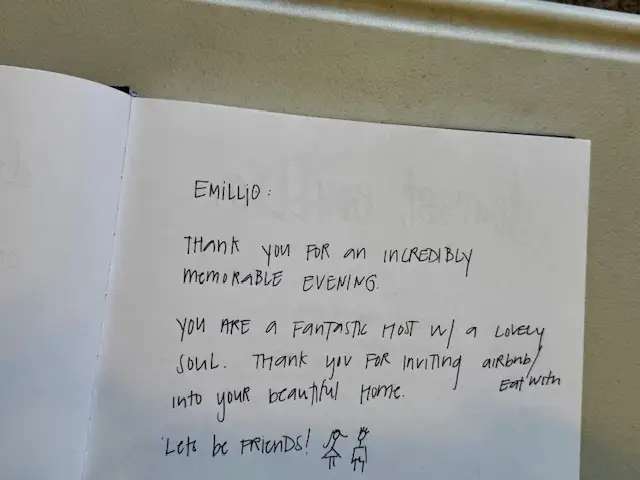 EMILLIO:
THANK YOU FOR AN INCREDIBLY
MEMORABLE EVENING.
YOU ARE A FANTASTIC HOST W/ A LOVELY
SOUL. THANK YOU FOR INVITING airbnb/
EatWith
INTO YOUR BEAUTIFUL HOME.
LETS BE FRIENDS!